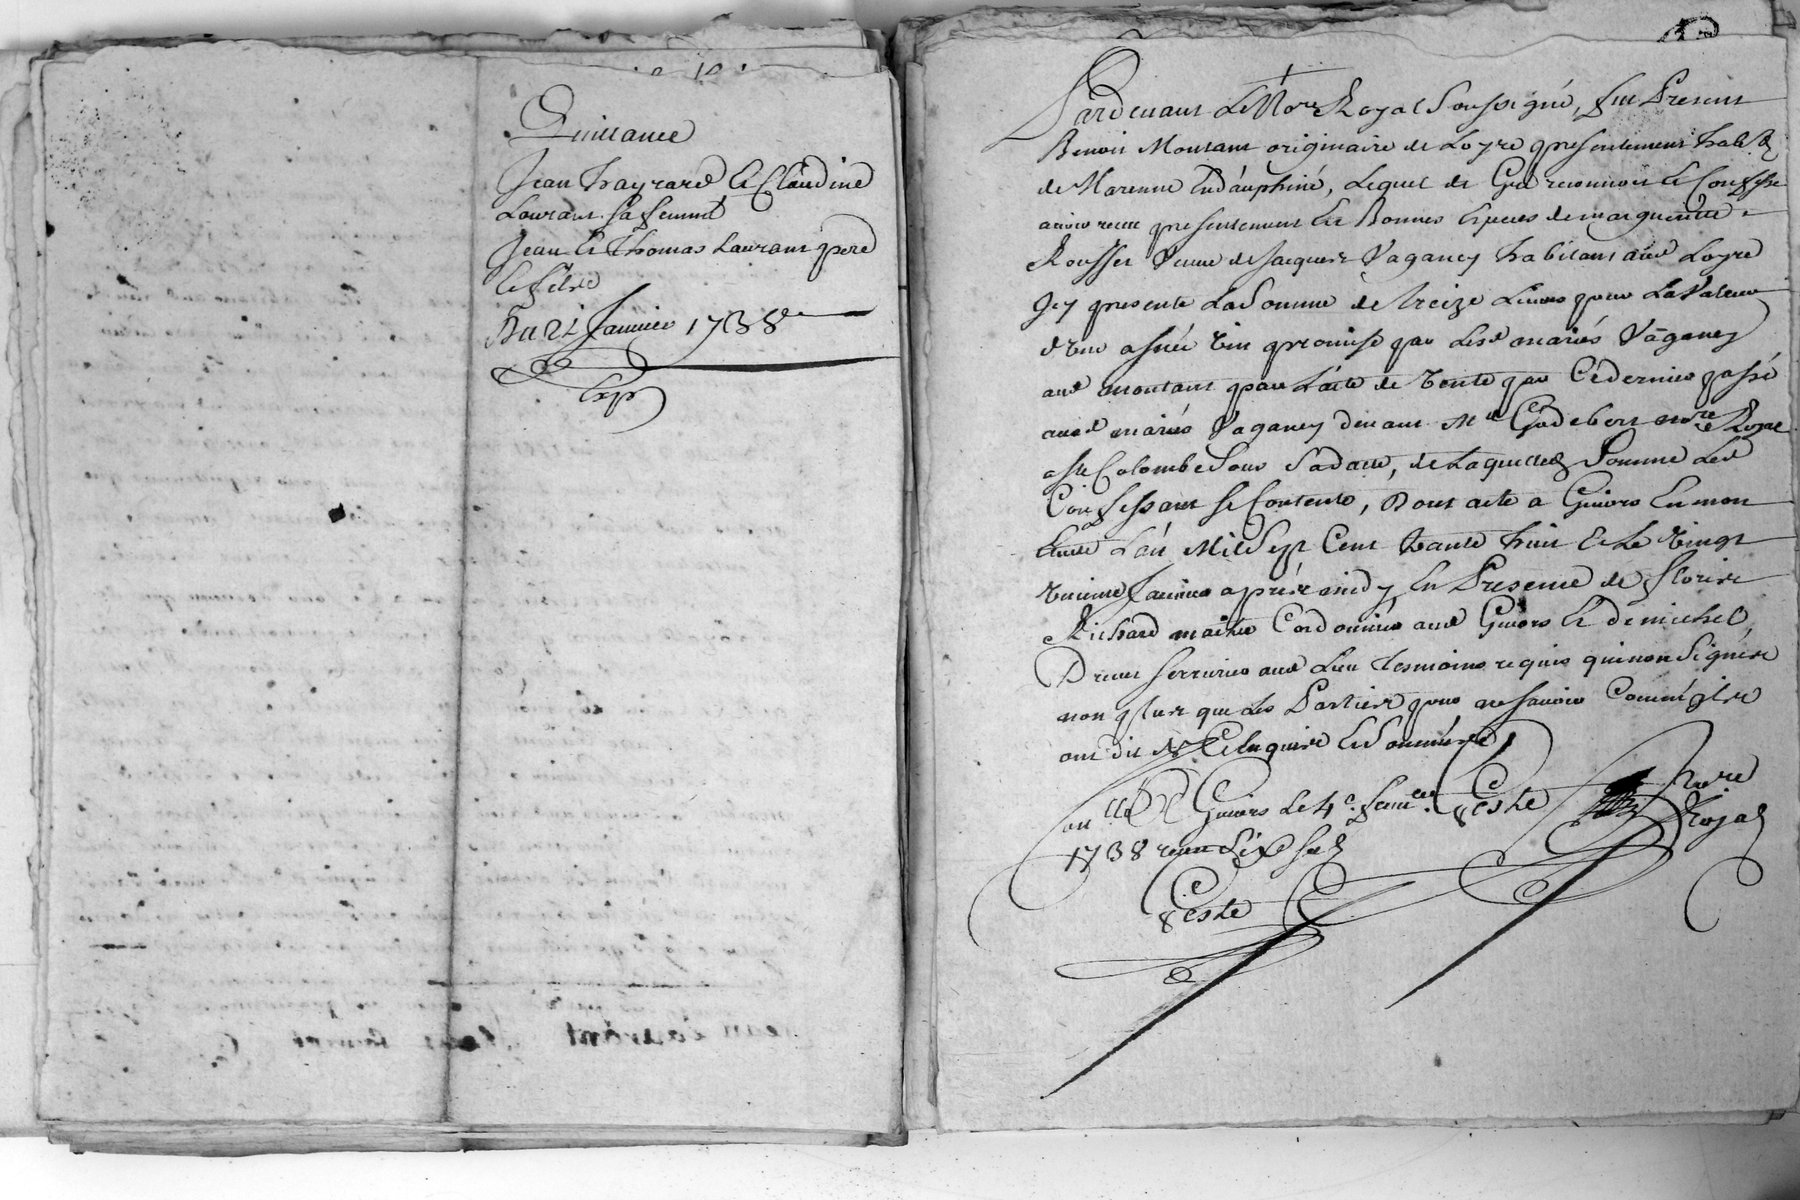 Quittance
Jean hayrard et Claudine
Laurans sa femme
Jean et Thomas Laurans pere
et filz
Du 21 Janvier 1738
Exp
Pardevant le Nore Royal Soussigné, fut Present
Benoit Montant originaire de Loyre presentement habt
de Marenne en dauphiné, Lequel de Gré reconnoit et Confesse
avoir receu presentement en Bonnes Especes de margueritte
Rousset Veuve de Jacques Vaganey habitant aud Loyre
Jcy presente La Somme de treize Livres pour La Valeur
d'une asnée vin promise par Lesd mariés Vaganey
aud montant par L'acte de vente par Ce dernier passé
aud mariés Vaganey devant Me Godebert nore Royal
a Ste Colombe Sous Sa datte, de Laquelle Somme Led
Confessant se Contente, Dont acte a Givors En mon
Etude L'an Mil Sept Cent trante huit et Le vingt
unieme Janvier aprés midy En Presence de floris
Richard maitre Cordonnier aud Givors et de michel
Drevet serrurier aud Lieu tesmoins requis qui n'on Signés
non plus que Les Parties pour ne savoir Comm'ils
ont dit de Ce Enquis et Sommés
Conlle a Givors Le 4e fevrier
1738 receu Six sols
Ceste
Ceste
Nore
Royal